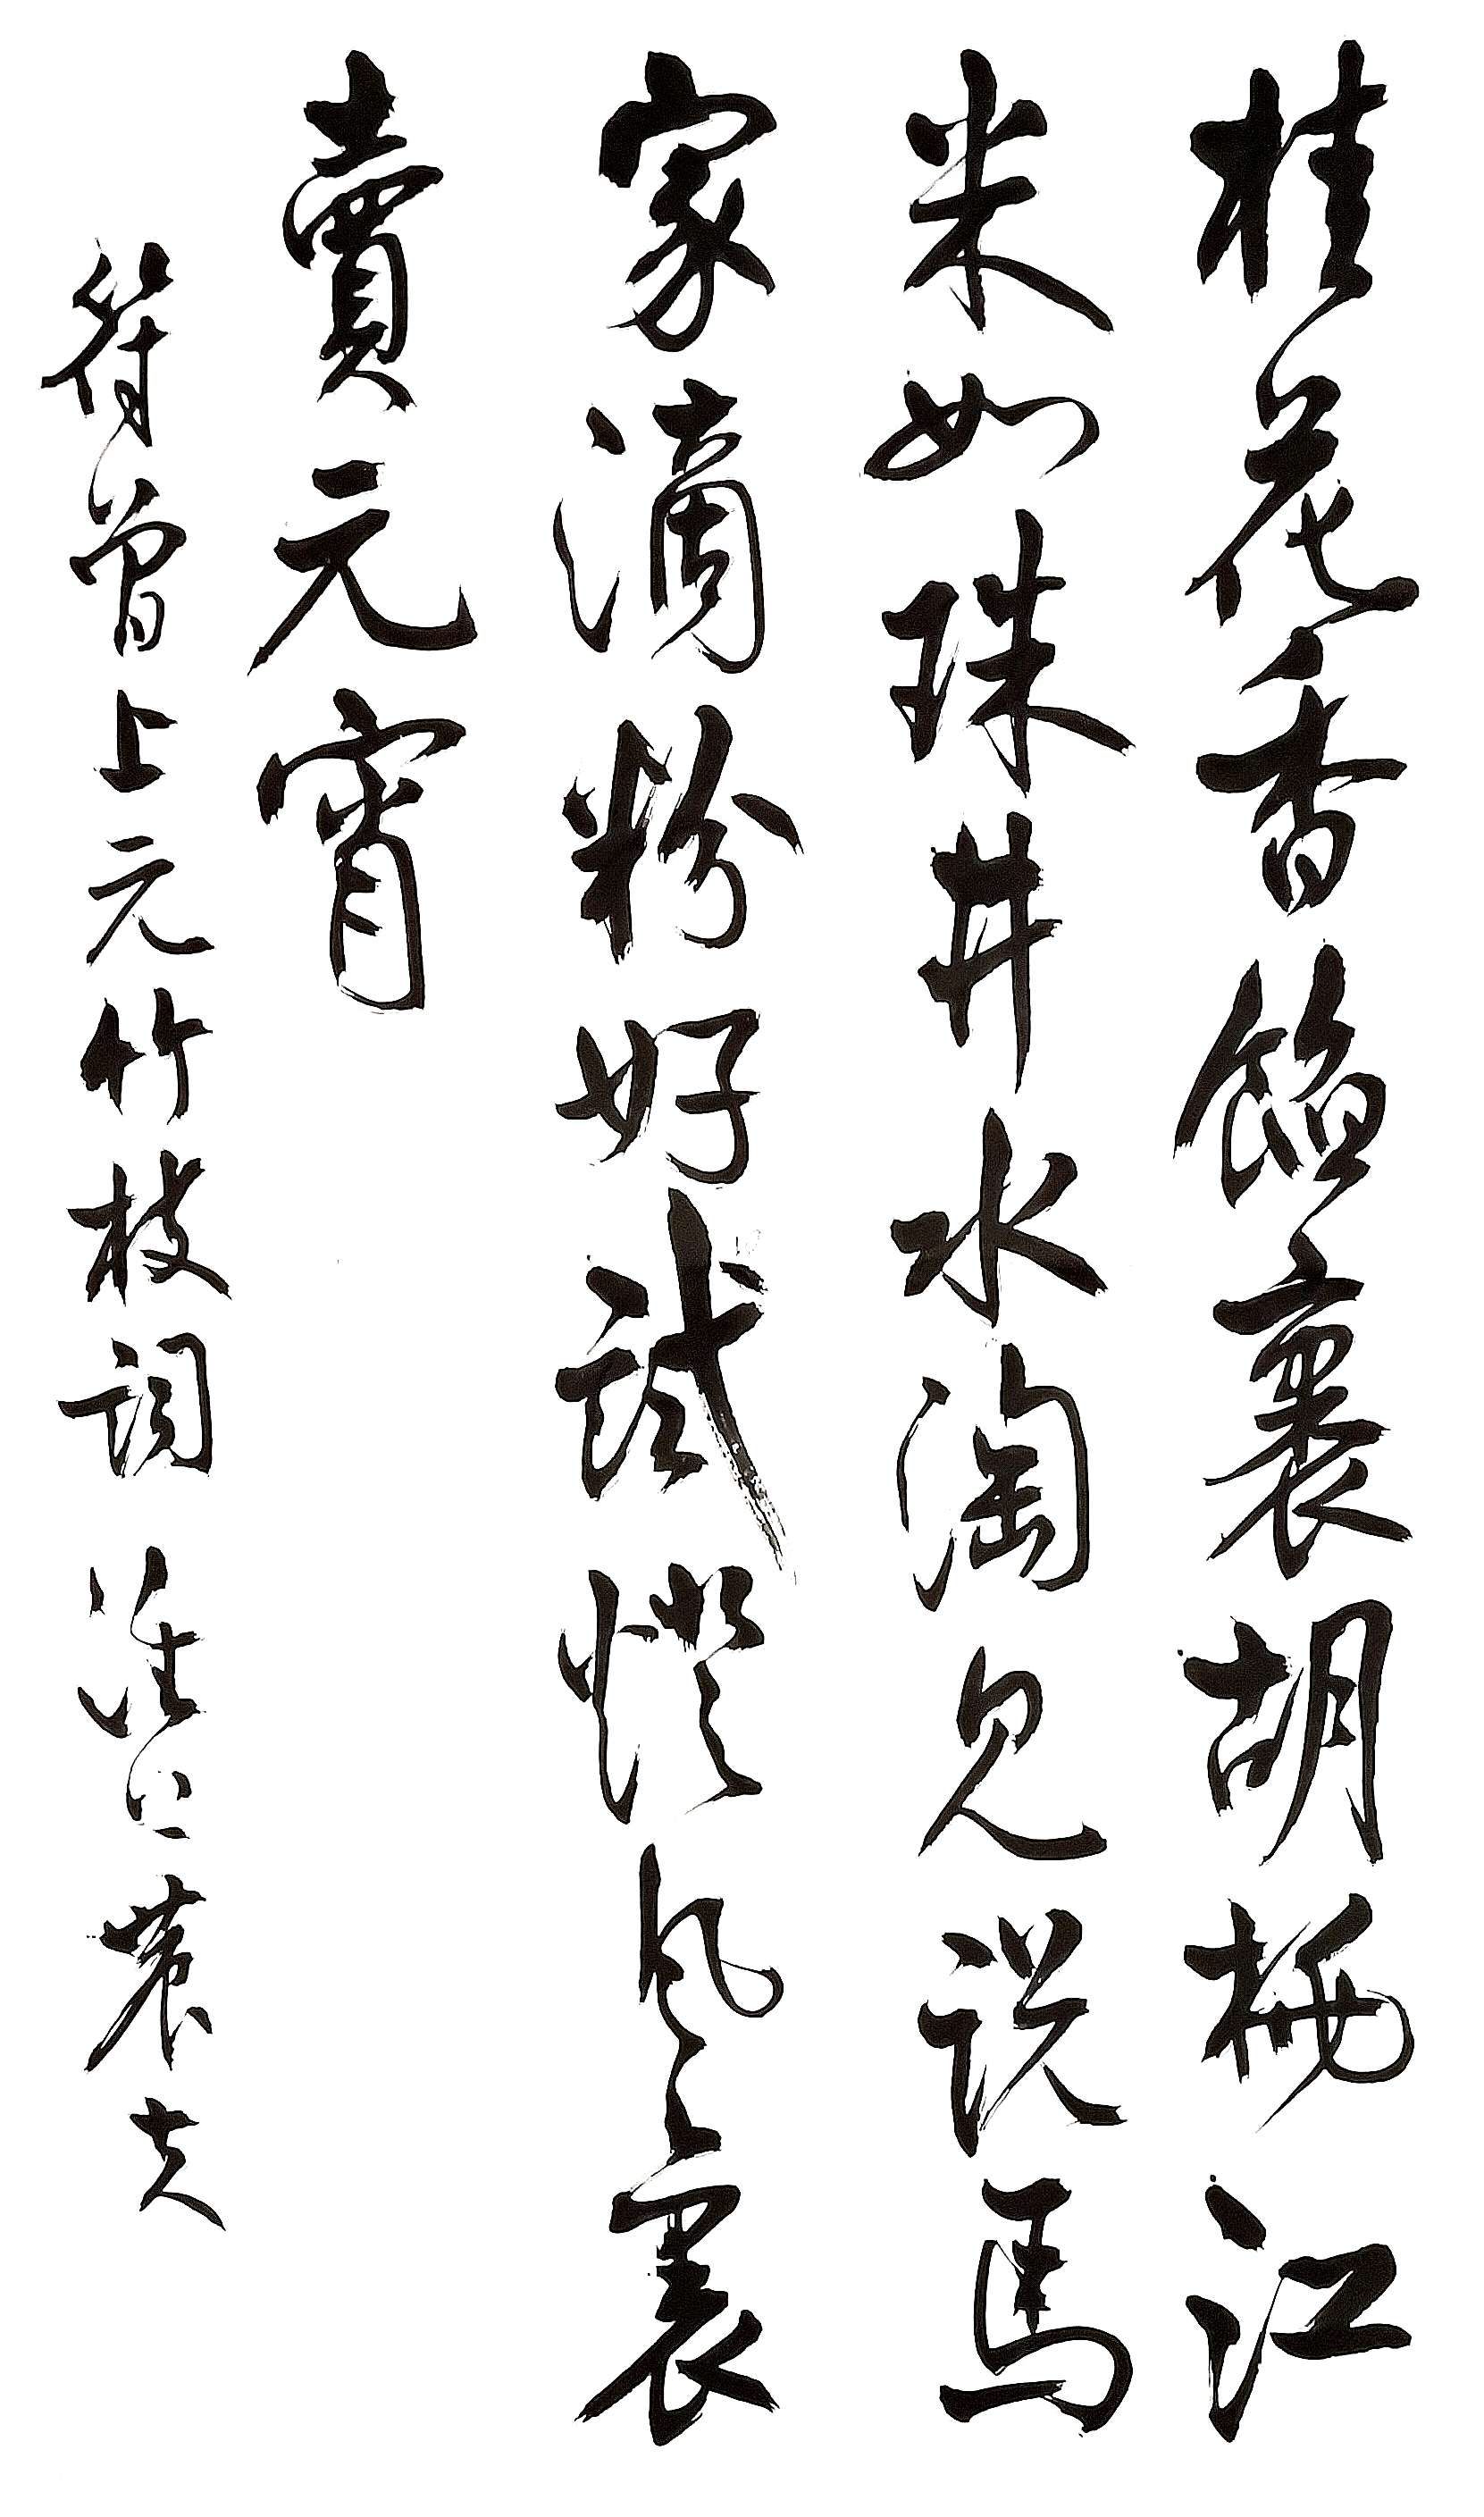 桂花香餡裹胡桃江
米如珠井水淘見說馬
家滴粉好試燈風裏
賣元宵
符曾上元竹枝詞 農夫